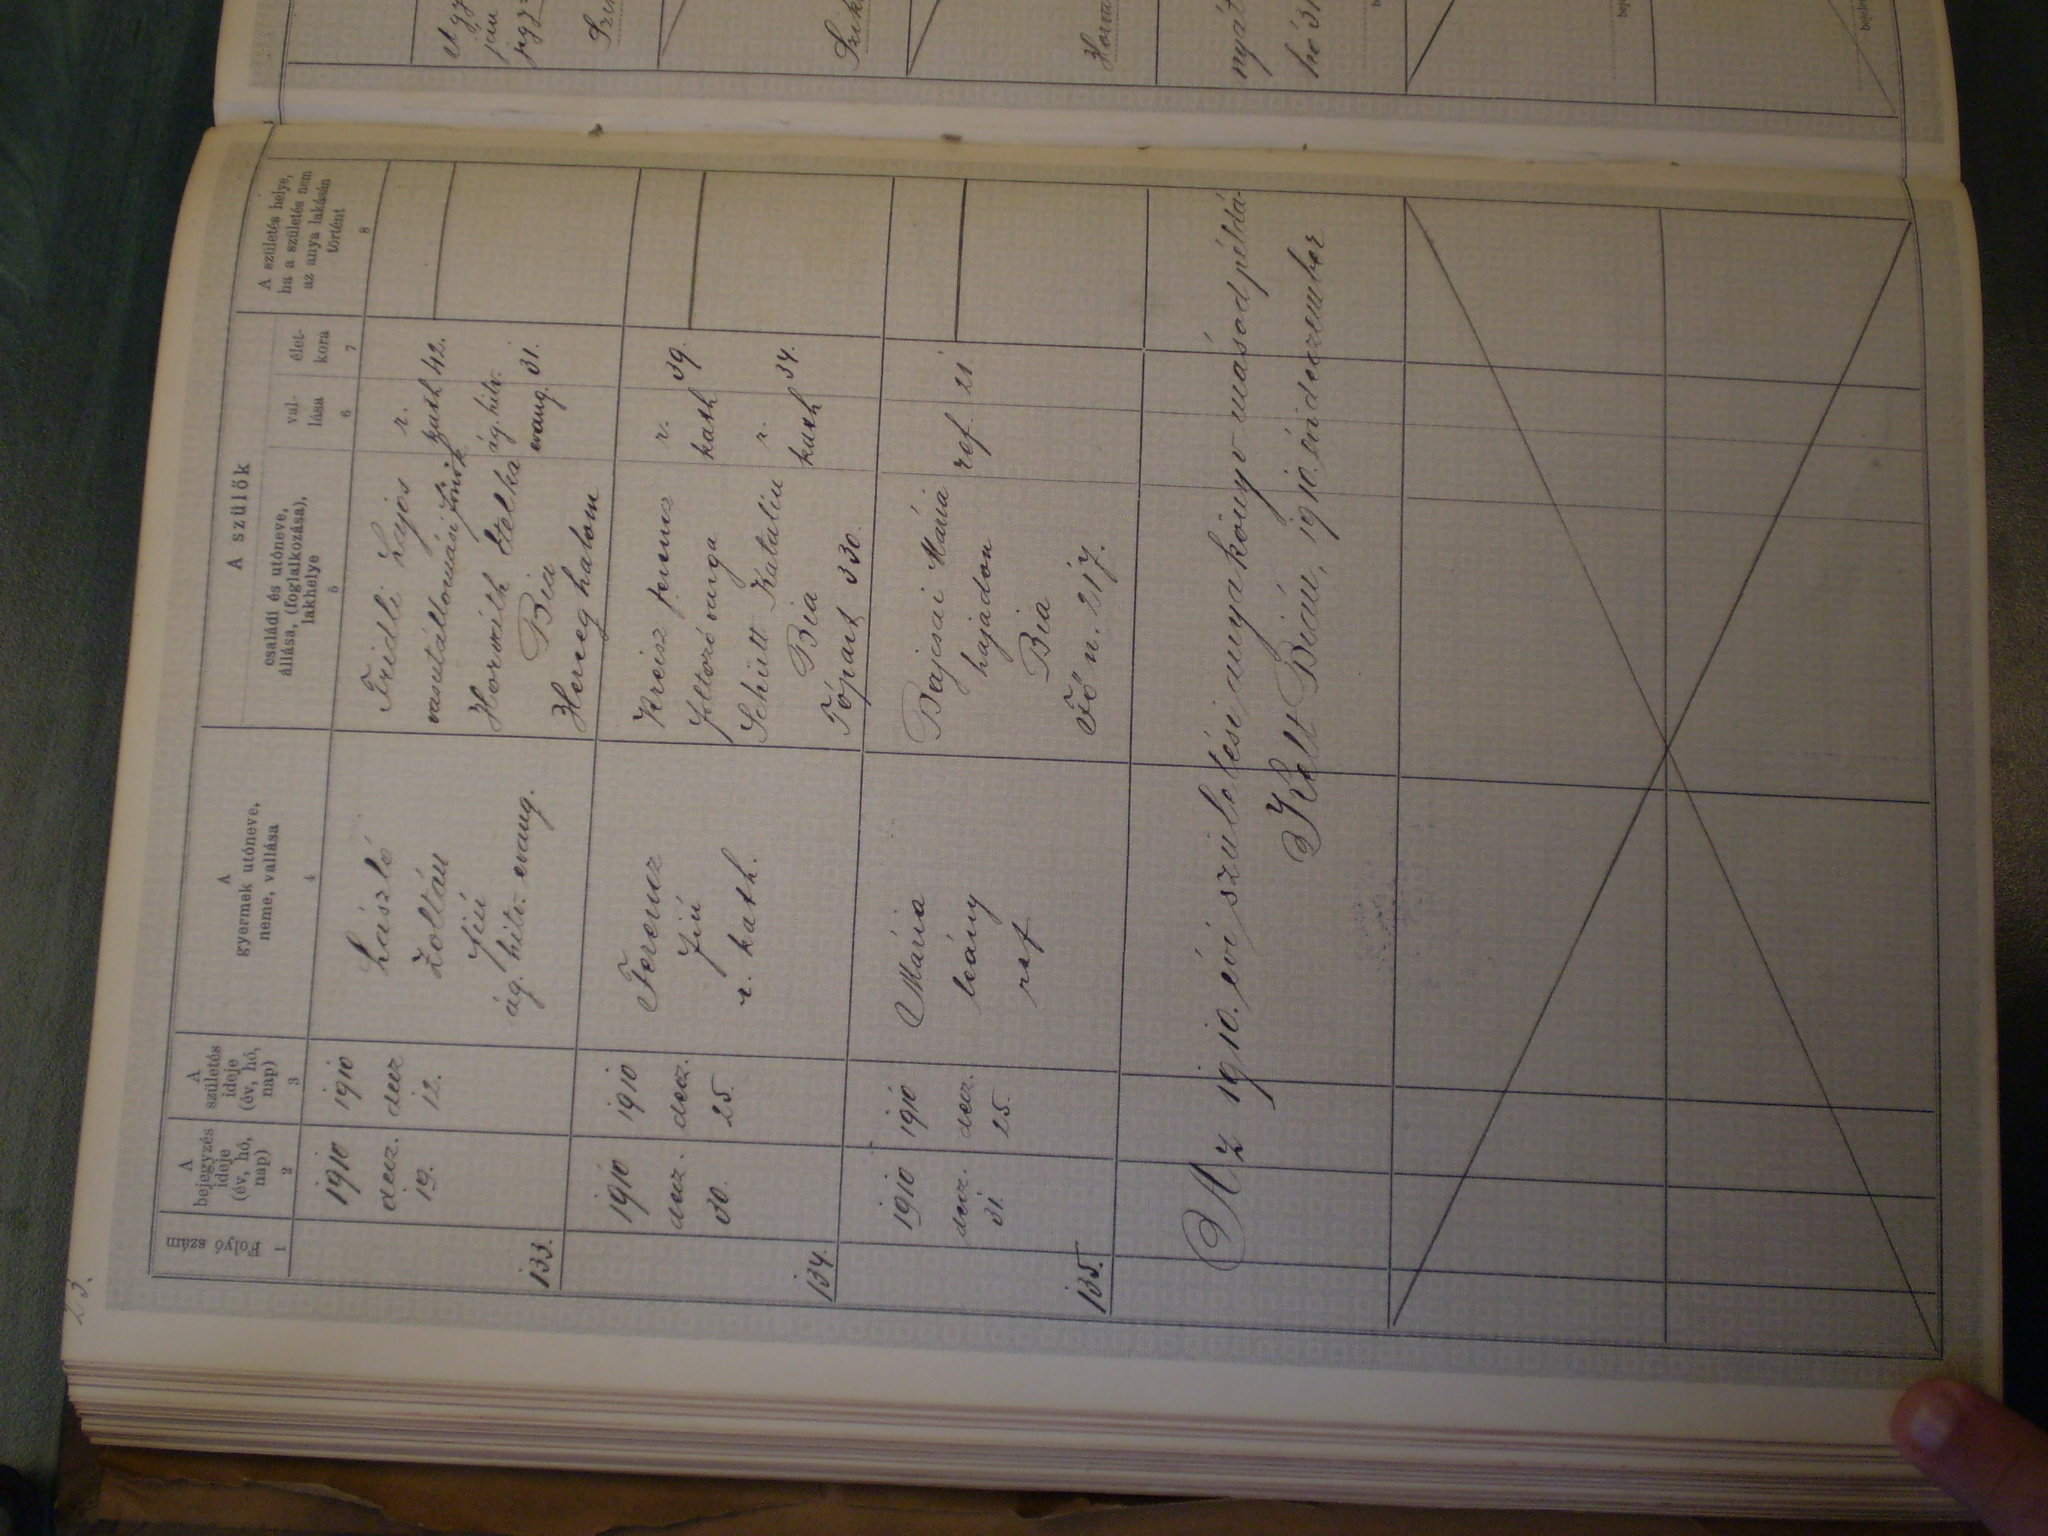 23.
A szülők
1
Folyó szám
2
A
bejegyzés
ideje
(év, hó,
nap)
3
A
születés
ideje
(év, hó,
nap)
4
A
gyermek utóneve,
neme, vallása
5
családi és utóneve,
állása, (foglalkozása),
lakhelye
6
val-
lása
7
élet-
kora
8
A születés helye,
ha a születés nem
az anya lakásán
történt
133.
1910
decz.
19.
1910
decz
12.
László
Zoltán
fiú
ág. hitv. evang.
Fridli Lajos
vasutállomási főnök
r.
kath
42.
Horváth Etelka
ág. hitv.
evang.
31.
Bia
Herceghalom
134.
1910
decz.
30.
1910
decz.
25.
Ferencz
fiú
r. kath.
Kreisz Ferencz
foltozó varga
r.
kath
39.
Schütt Katalin
r.
kath
34.
Bia
Tópart 330.
135.
1910
decz.
31.
1910
decz.
25.
Mária
leány
ref
Bajcsai Mária
hajadon
ref.
21.
Bia
Fő u. 217.
Az 1910. évi születési anyakönyv másodpéldá-
Kelt Bián, 1910. évi deczember